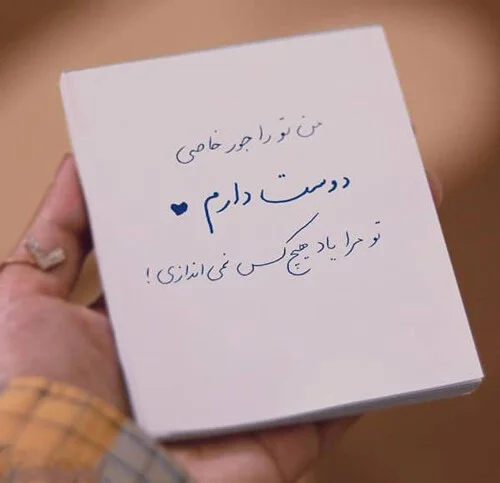 من تو را جور خاصی
دوست دارم ♥
تو مرا یاد هیچ کس نمی اندازی !